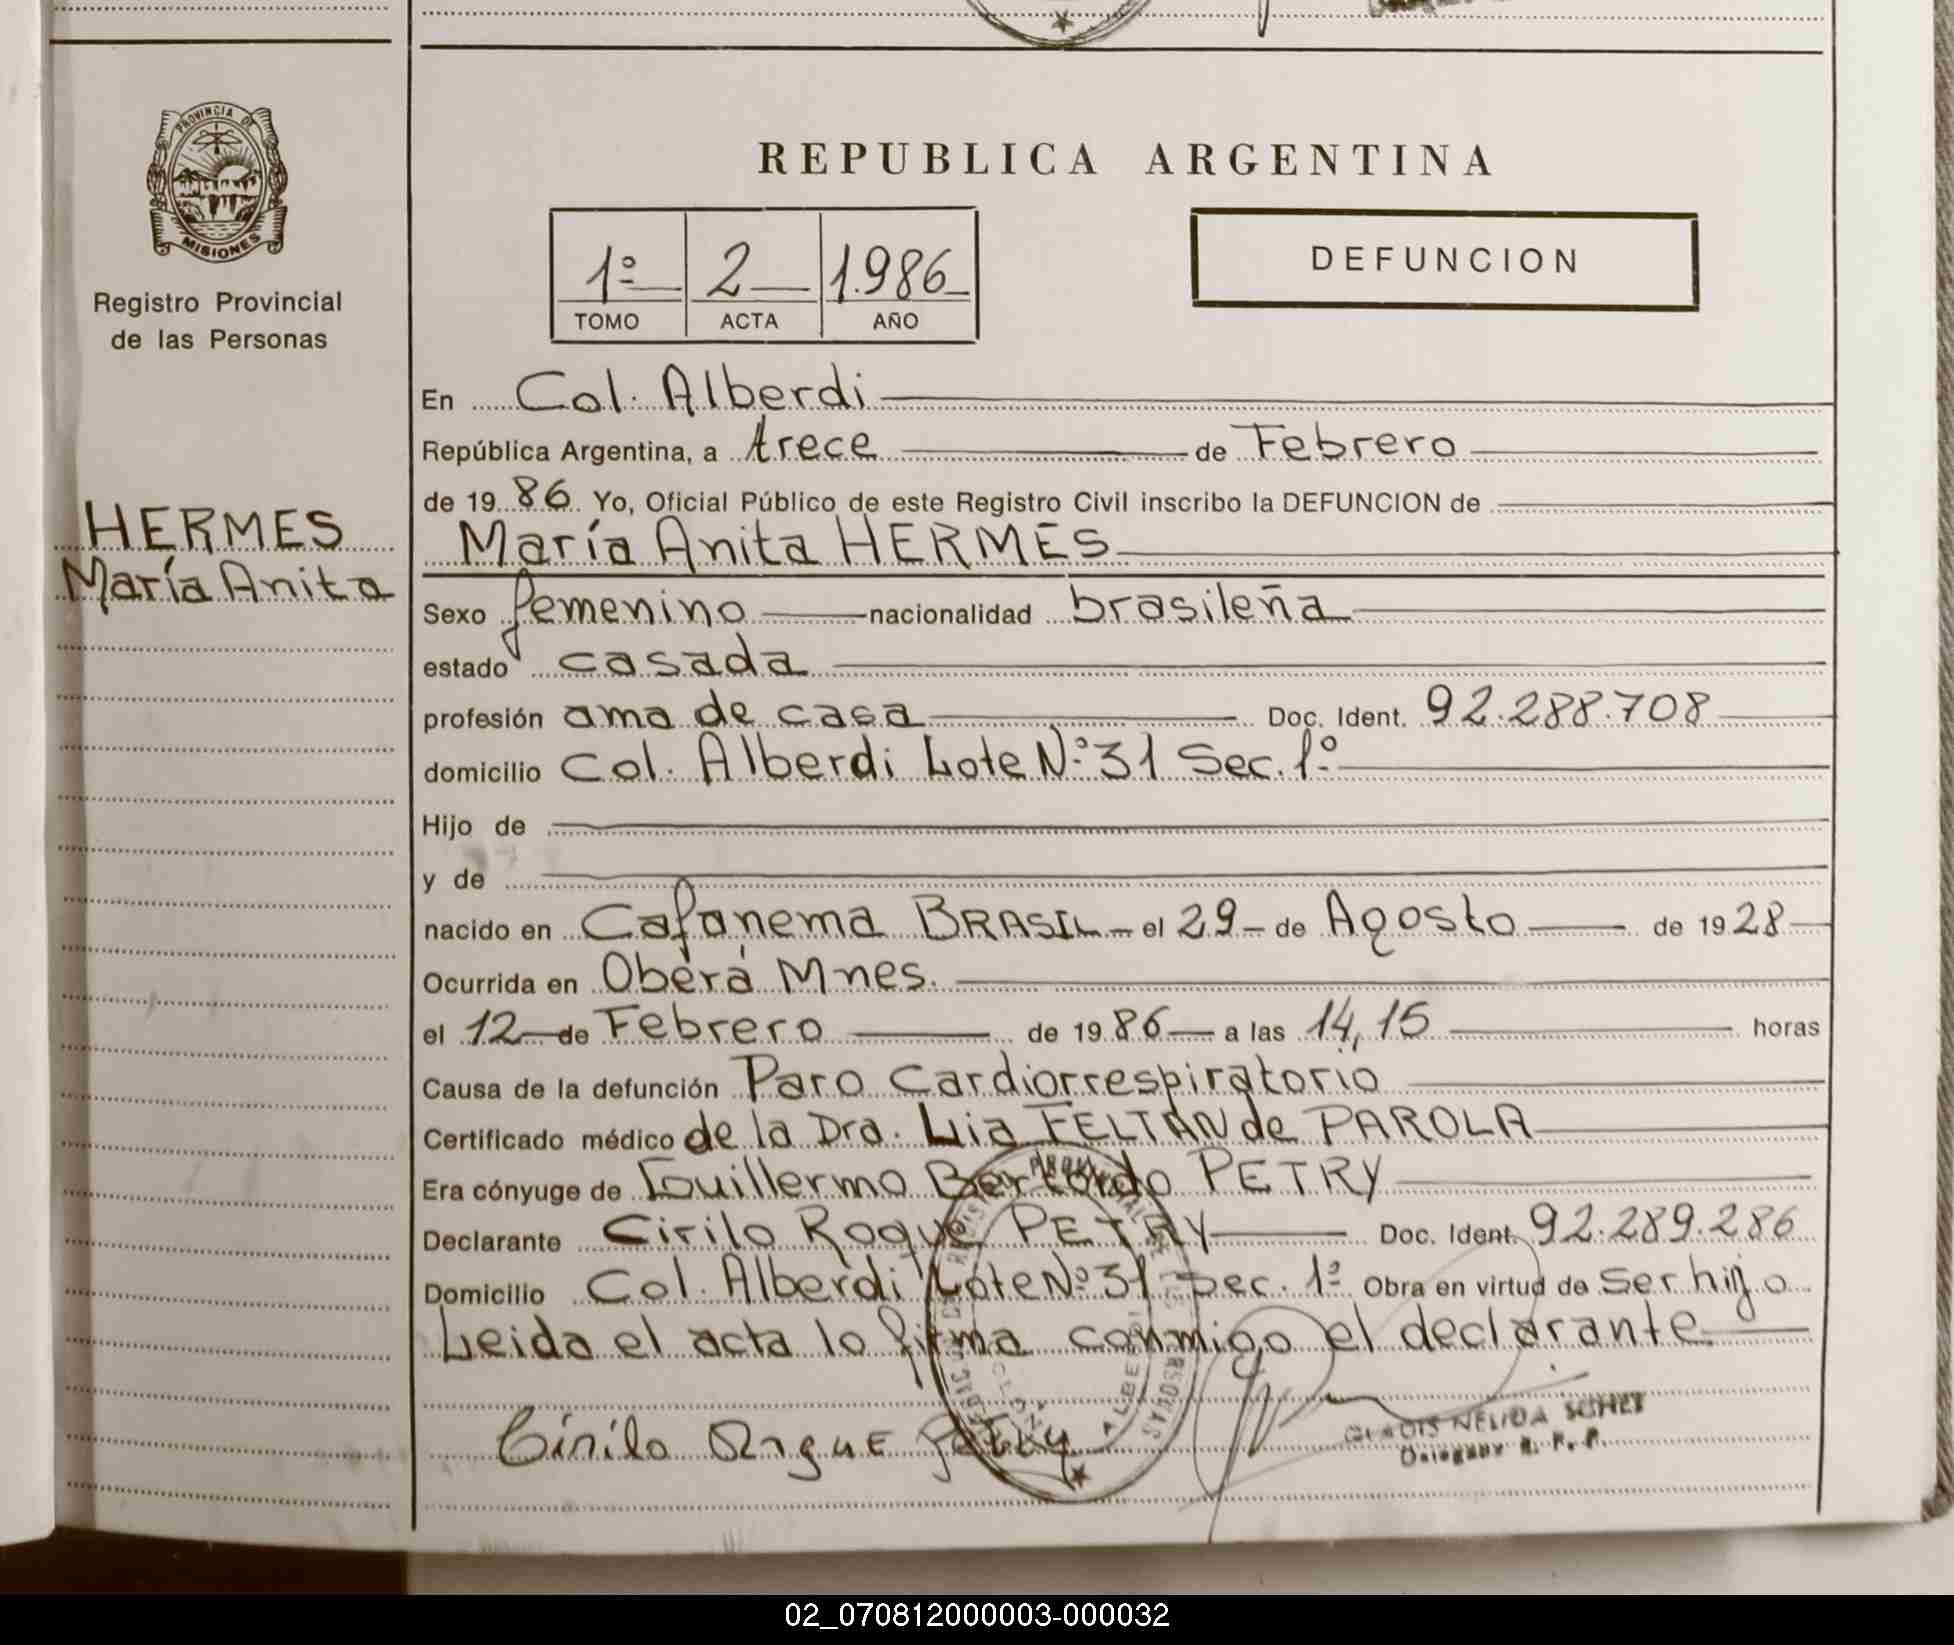 PROVINCIA DE
MISIONES
Registro Provincial
de las Personas
HERMES
María Anita
REPUBLICA ARGENTINA
1º 2 1.986
TOMO ACTA AÑO
DEFUNCION
En Col. Alberdi
República Argentina, a trece de Febrero
de 19 86 Yo, Oficial Público de este Registro Civil inscribo la DEFUNCION de
María Anita HERMES
Sexo femenino nacionalidad brasileña
estado casada
profesión ama de casa Doc. Ident. 92.288.708
domicilio Col. Alberdi Lote Nº 31 Sec. 1º
Hijo de
y de
nacido en Cafanema BRASIL el 29 de Agosto de 19 28
Ocurrida en Oberá Mnes.
el 12 de Febrero de 19 86 a las 14,15 horas
Causa de la defunción Paro Cardiorrespiratorio
Certificado médico de la Dra. Lia FELTAN de PAROLA
Era cónyuge de Guillermo Bertoldo PETRY
Declarante Cirilo Roque PETRY Doc. Ident. 92.289.286
Domicilio Col. Alberdi Lote Nº 31 Sec. 1ª Obra en virtud de ser hijo
Leida el acta lo firma conmigo el declarante
Cirilo Roque Petry
GLADIS NELIDA
R. P. P.
02_070812000003-000032